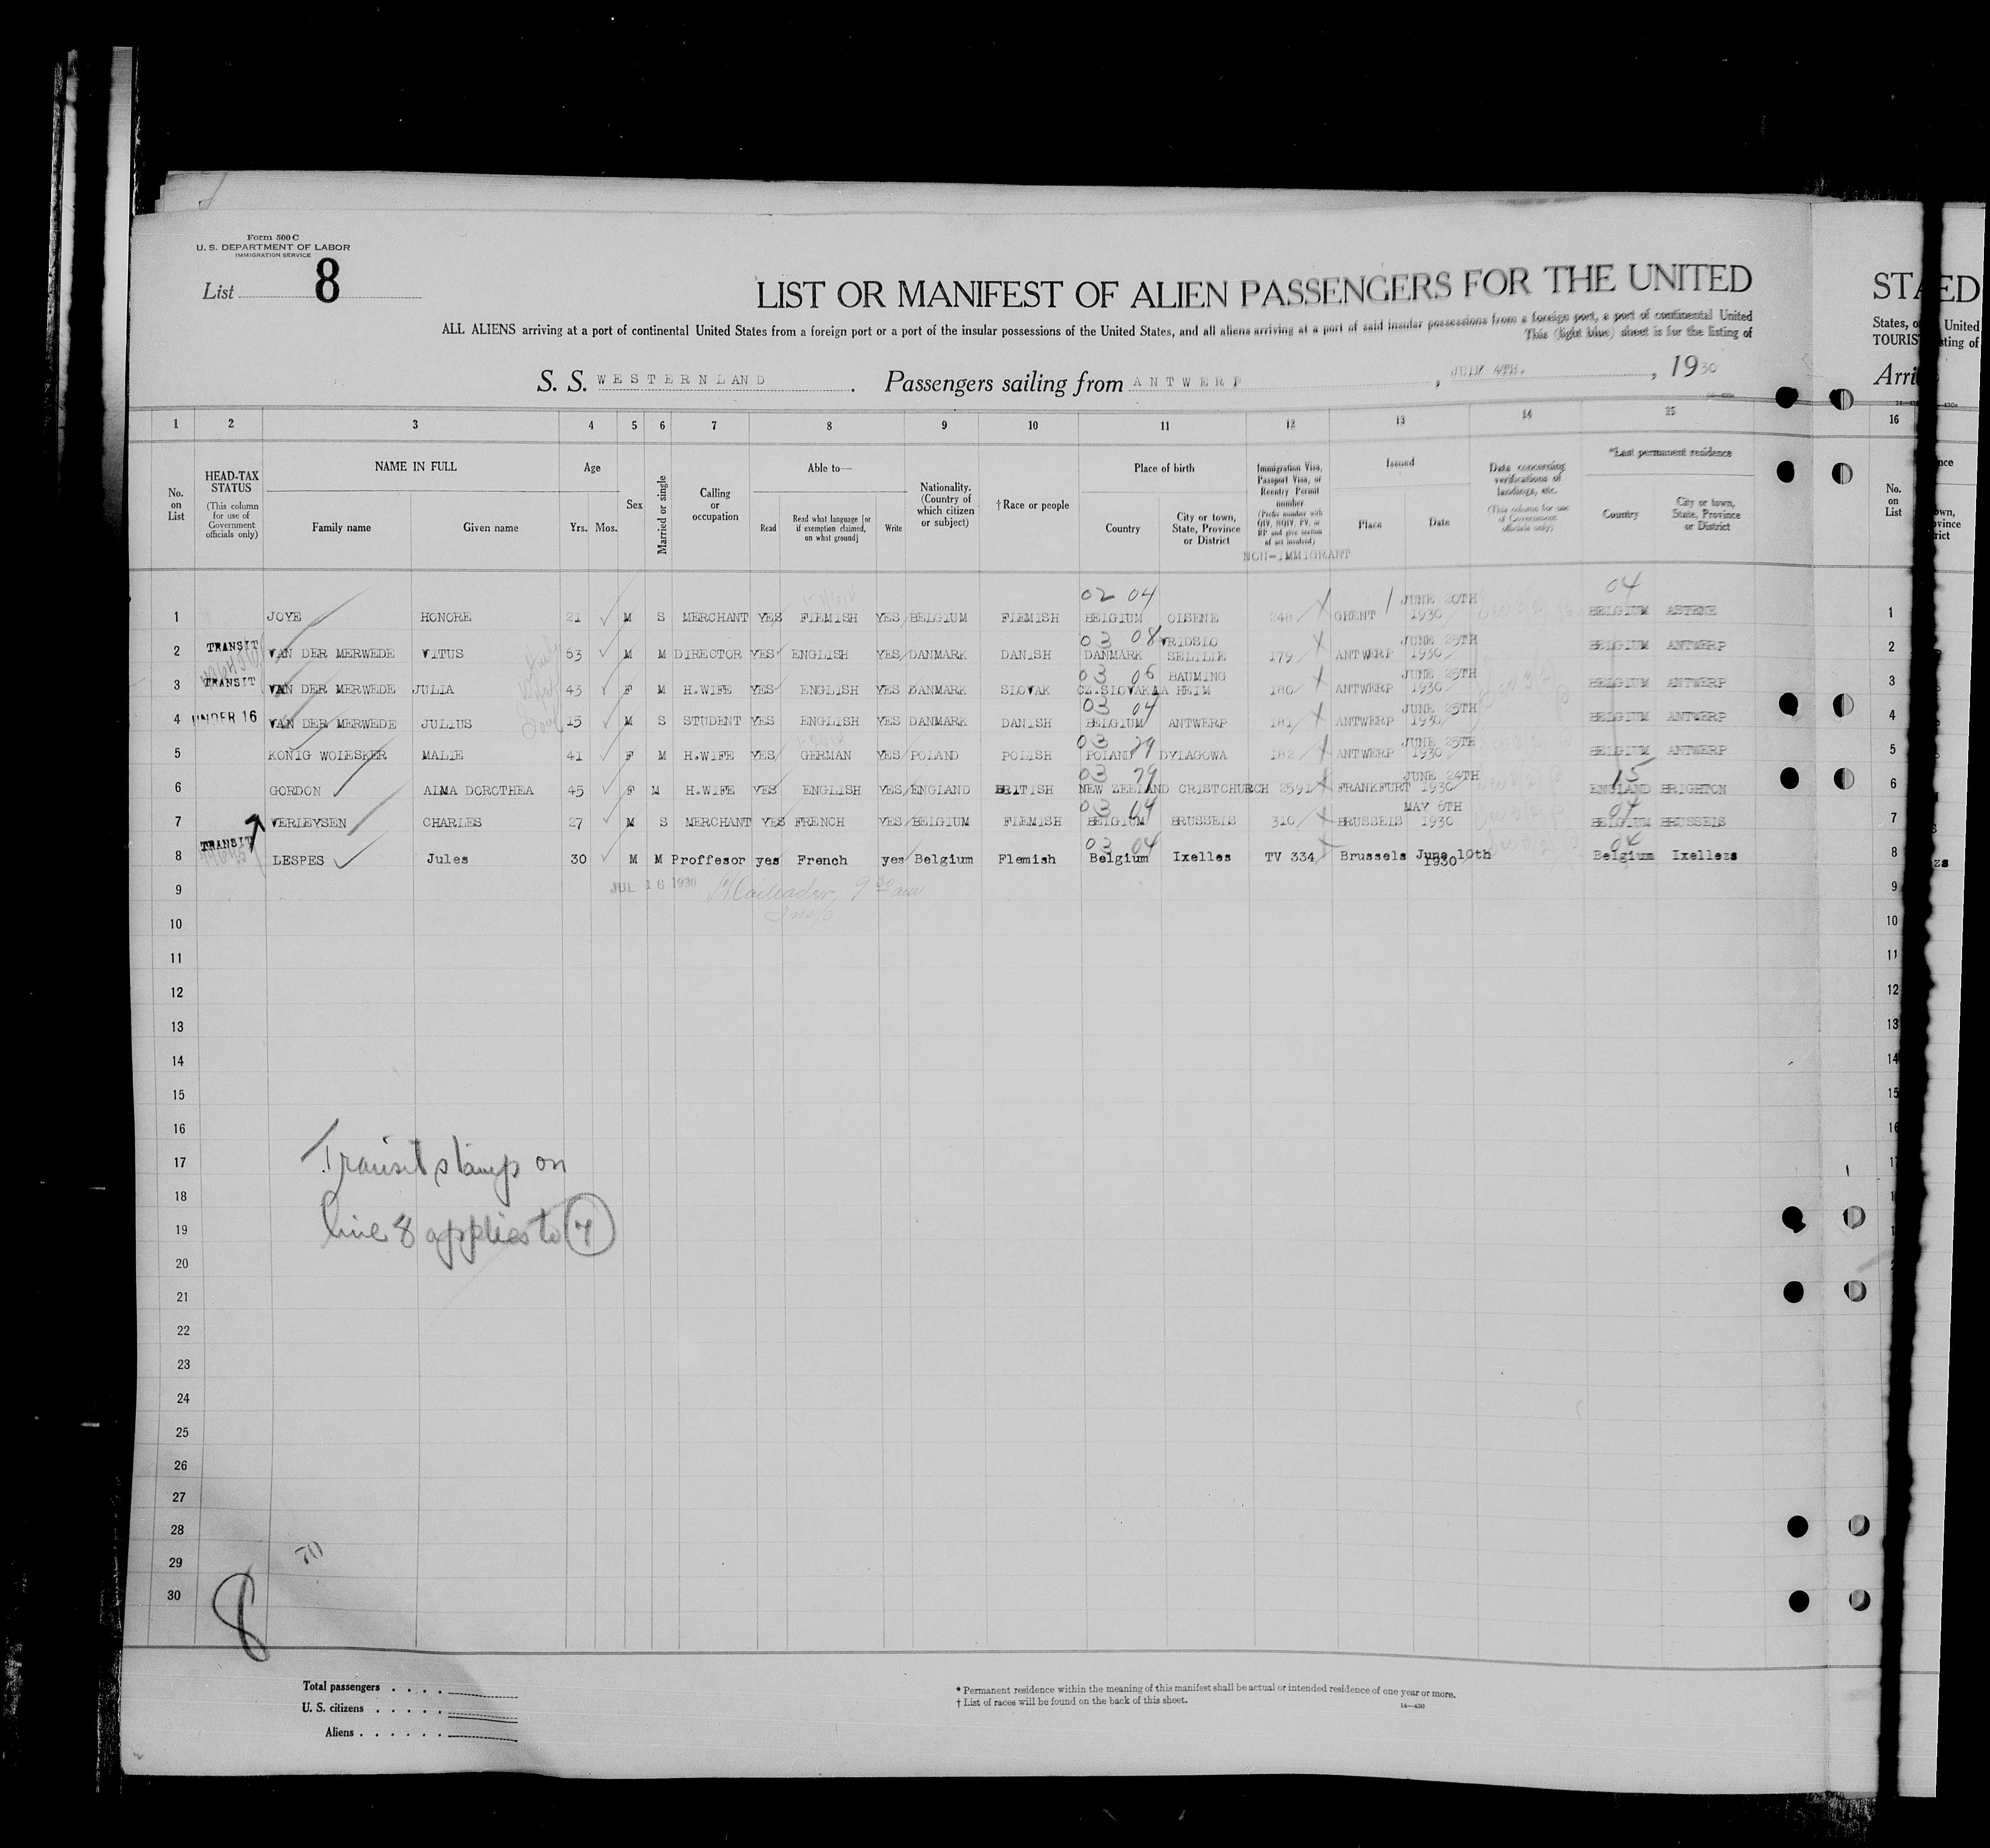 Form 500 C
U. S. DEPARTMENT OF LABOR
IMMIGRATION SERVICE
List 8
LIST OR MANIFEST OF ALIEN PASSENGERS FOR THE UNITED
ALL ALIENS arriving at a port of continental United States from a foreign port or a port of the insular possessions of the United States, and all aliens arriving at a port of said insular possessions from a foreign port, a port of continental United
This (light blue) sheet is for the listing of
S. S. WESTERNLAND. Passengers sailing from ANTWERP, JULY 4TH., 1930
STA ED
States, o United
TOURIS sting of
Arri
1 2 3 4 5 6 7 8 9 10 11 12 13 14 15 16
No. on List
HEAD-TAX STATUS (This column for use of Government officials only)
NAME IN FULL Family name Given name
Age Yrs. Mos.
Sex
Married or single
Calling or occupation
Able to— Read Read what language [or if exemption claimed, on what ground] Write
Nationality. (Country of which citizen or subject)
† Race or people
Place of birth Country City or town, State, Province or District
Immigration Visa, Passport Visa, or Reentry Permit number (Prefix number with QIV, NQIV, PV, or RP and give section of act involved)
NON-IMMIGRANT
Issued Place Date
Data concerning verifications of landings, etc. (This column for use of Government officials only)
*Last permanent residence Country City or town, State, Province or District
No. on List
02 04 04
1 JOYE HONORE 21 M S MERCHANT YES FLEMISH YES BELGIUM FLEMISH BELGIUM OLSENE 248 GHENT JUNE 20TH 1930 BELGIUM ASTENE 1
03 08
2 TRANSIT VAN DER MERWEDE VITUS 63 M M DIRECTOR YES ENGLISH YES DANMARK DANISH DANMARK VRIDSLO SELILLE 179 ANTWERP JUNE 25TH 1930 BELGIUM ANTWERP 2
03 06
3 TRANSIT VAN DER MERWEDE JULIA 43 F M H.WIFE YES ENGLISH YES DANMARK SLOVAK CZ.SLOVAKIA BAUMING HEIM 180 ANTWERP JUNE 25TH 1930 BELGIUM ANTWERP 3
03 04
4 UNDER 16 VAN DER MERWEDE JULIUS 15 M S STUDENT YES ENGLISH YES DANMARK DANISH BELGIUM ANTWERP 181 ANTWERP JUNE 25TH 1930 BELGIUM ANTWERP 4
03 29
5 KONIG WOLESKER MALIE 41 F M H.WIFE YES GERMAN YES POLAND POLISH POLAND DYLAGOWA 182 ANTWERP JUNE 25TH 1930 BELGIUM ANTWERP 5
03 79 15
6 GORDON ALMA DOROTHEA 45 F M H.WIFE YES ENGLISH YES ENGLAND BRITISH NEW ZEELAND CRISTCHURCH 2591 FRANKFURT JUNE 24TH 1930 ENGLAND BRIGHTON 6
03 04 04
7 VERLEYSEN CHARLES 27 M S MERCHANT YES FRENCH YES BELGIUM FLEMISH BELGIUM BRUSSELS 310 BRUSSELS MAY 6TH 1930 BELGIUM BRUSSELS 7
03 04 04
8 TRANSIT LESPES Jules 30 M M Proffesor yes French yes Belgium Flemish Belgium Ixelles TV 334 Brussels June 10th 1930 Belgium Ixellezs 8
9 JUL 16 1930 9
10 10
11 11
12 12
13 13
14 14
15 15
16 16
17 Transit stamp on
18
19 line 8 applies to 7
20
21
22
23
24
25
26
27
28
29 70
30
8
Total passengers
U. S. citizens
Aliens
* Permanent residence within the meaning of this manifest shall be actual or intended residence of one year or more.
† List of races will be found on the back of this sheet.
14—430